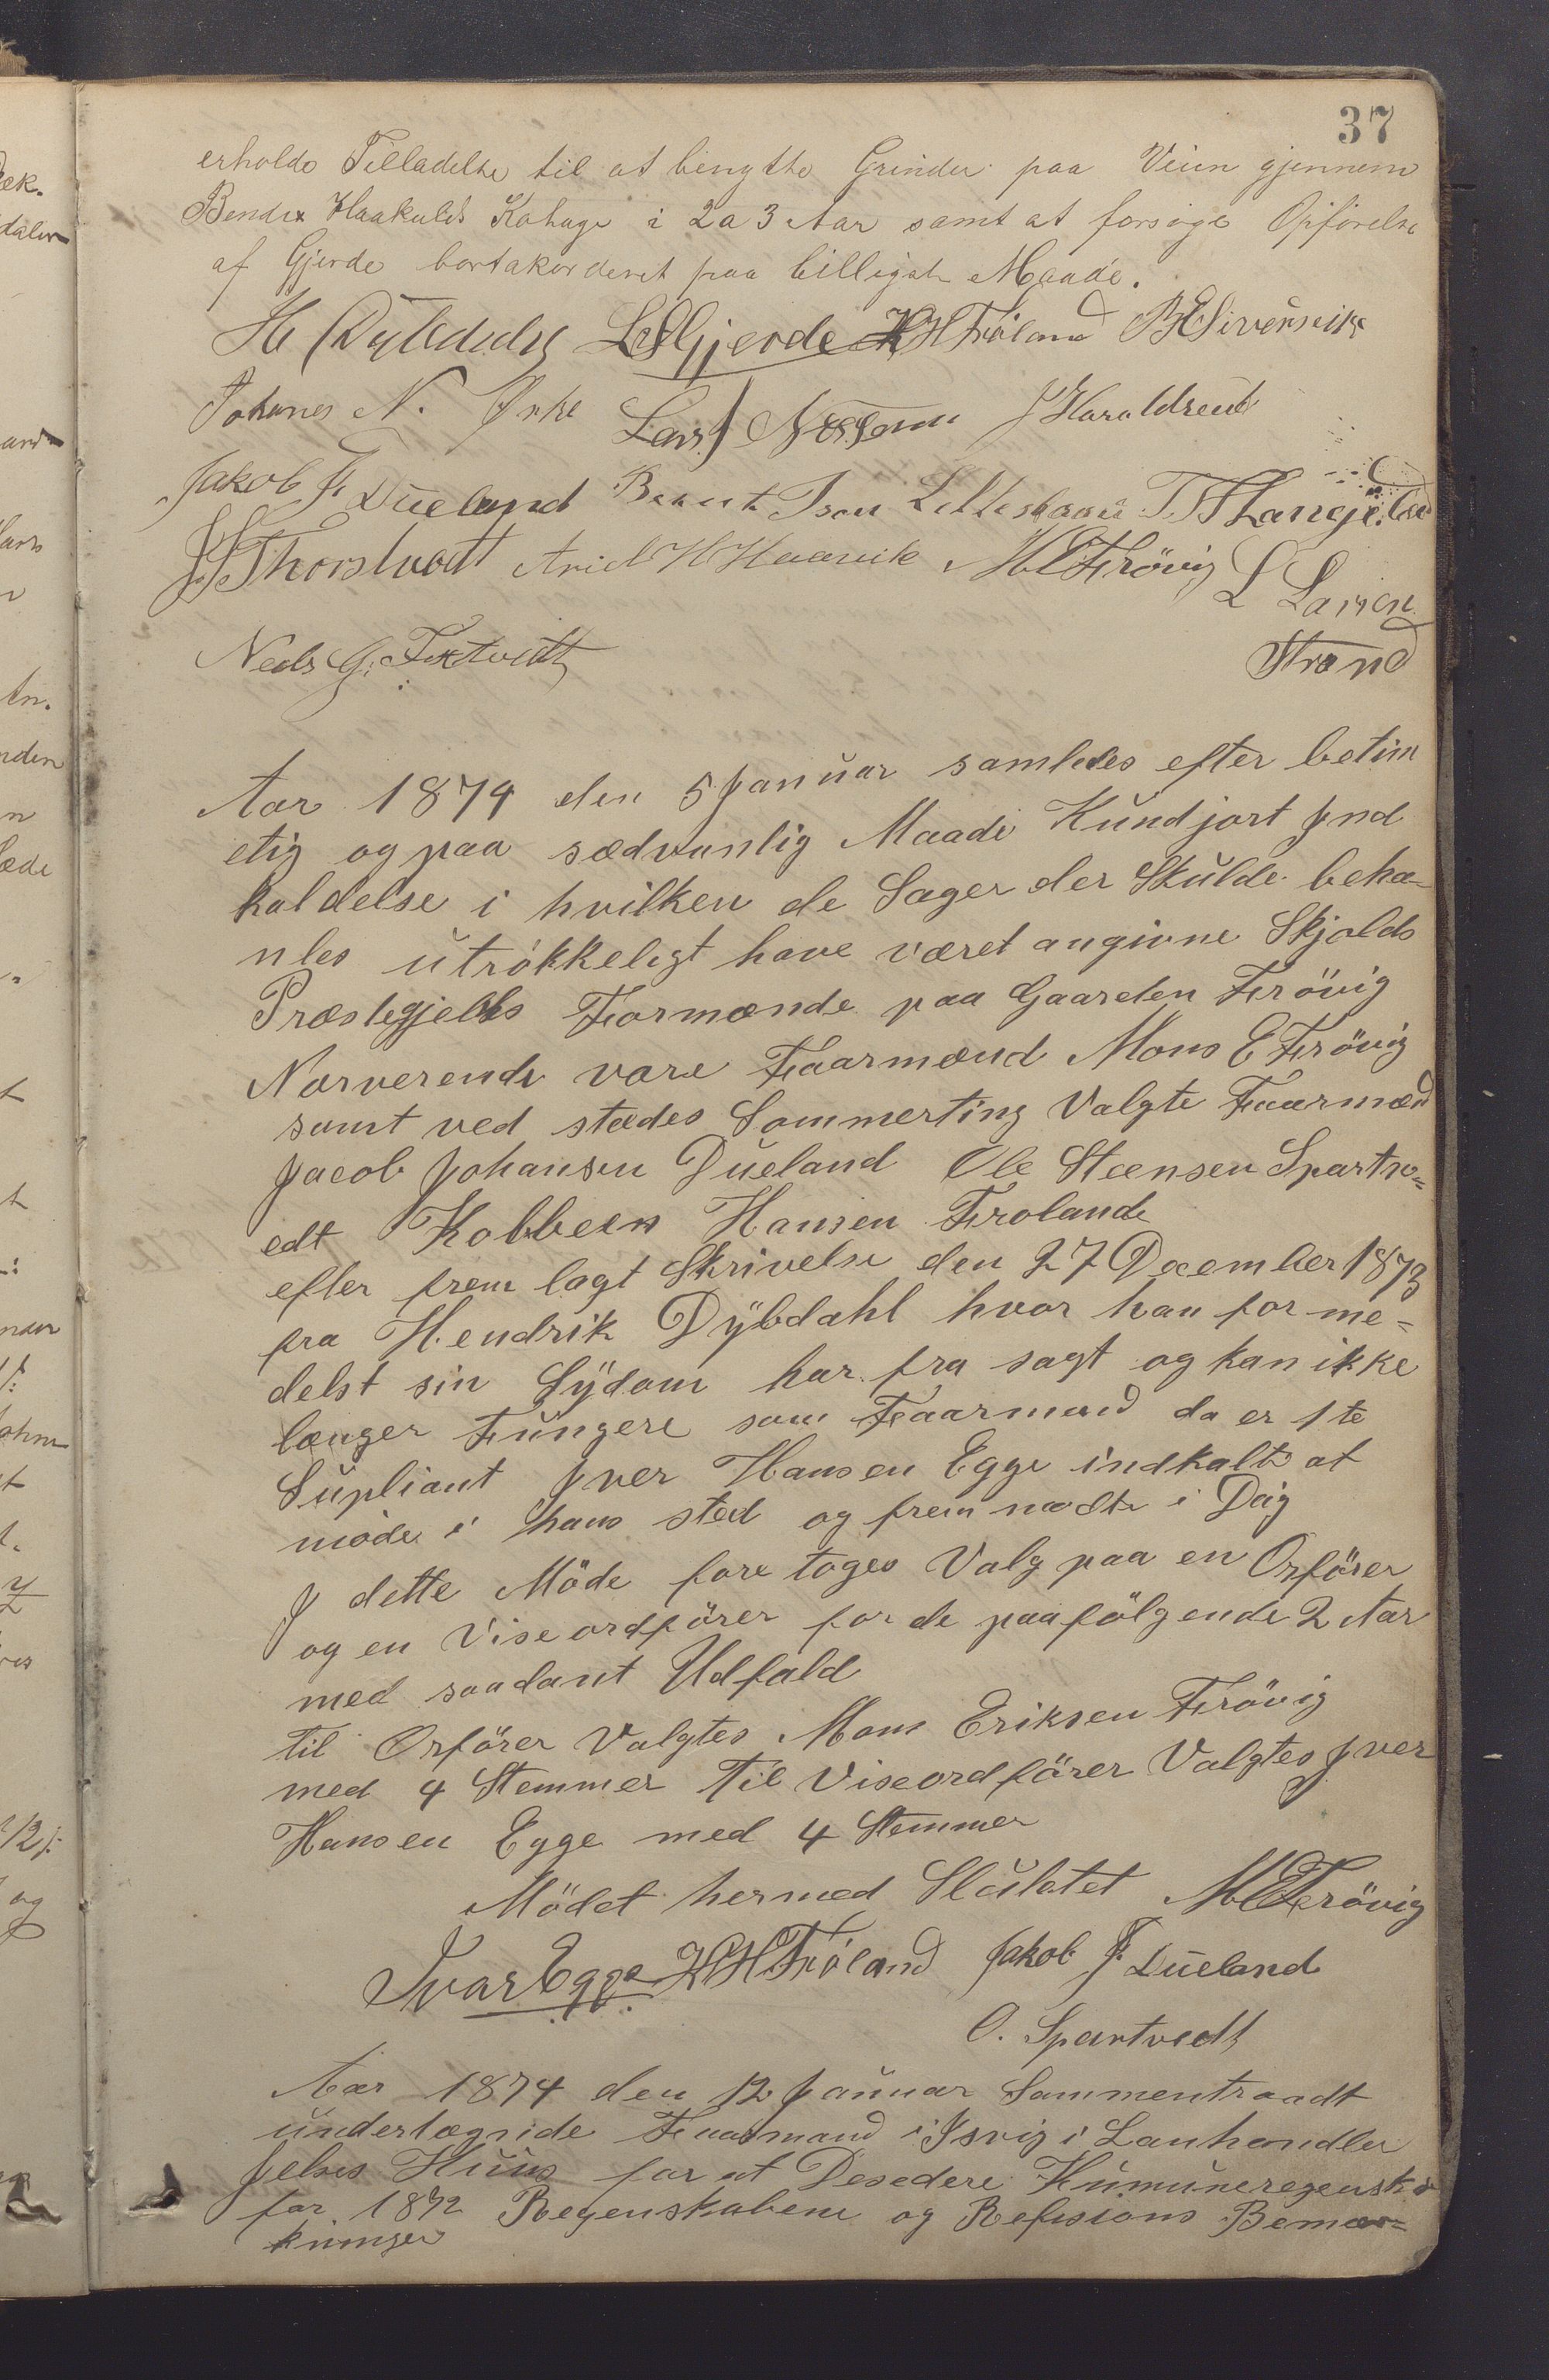 37
erholde Tilladelse til at benytte Grinder paa Veien gjennem
Bendix Haakulls Kohage i 2 a 3 Aar samt at forsöge Opförelse
af Gjerde bortakorderet paa billigste Maade.
H Dybdahl LSGjerde KHFröland BESivensvik
Johanes N. Ørke Lars Nessem JHaraldseid
Jakob J. Dueland Berent Ison Lilleskaar
JJThorstvedt Arid H Haavik METrövig L Larsen
Neels G. Textvedt Strand
Aar 1874 den 5 Januar samledes efter betim
elig og paa sædvanlig Maade Kundjort Jnd
kaldelse i hvilken de Sager der Skulde beha-
nles utrökkeligt have været angivne Skjolds
Præstegjelds Formænde paa Gaarden Frövig
Nærverende vare Faarmænd Mons E Frövig
samt ved stædes Sommerting Valgte Faarmænd
Jacob Johansen Dueland Ole Steensen Spartv=
edt Kolbeen Hansen Frolande
efter frem lagt Skrivelse den 27 December 1873
fra Hendrik Dybdahl hvor han for me=
delst sin Sydom har fra sagt og kan ikke
længer Fungere som Faarmand da er 1te
Supliant Jver Hansen Egge indkalt at
möde i hans sted og frem mødte i Dag
J dette Möde fore toges Valg paa en Orförer
og en Viseordförer for de paafölgende 2 Aar
med saadant Udfald
til Orförer Valgtes Mons Eriksen Frövig
med 4 Stemmer Til Viseordförer Valgtes Jver
Hansen Egge med 4 Stemmer
Mödet hermed Slutet METrövig
Ivar Egge KHFröland Jakob J. Dueland
O. Spartvedt
Aar 1874 den 12 Januar Sammentraadt
undertægnide Faarmænd i Isvig i Lanhandler
Jelses Huus for at Desedere Kumuneregensk
for 1872 Regenskabene og Refisions Bemær=
kninger